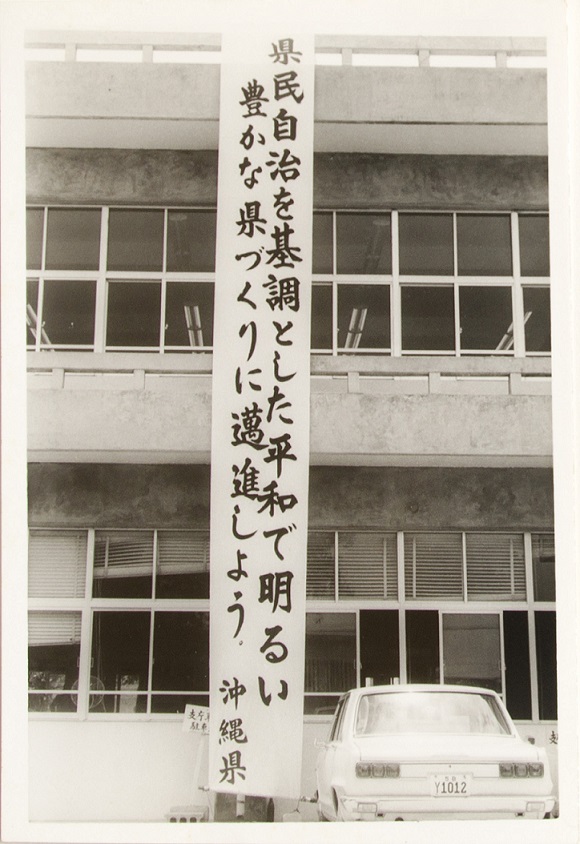 県民自治を基調とした平和で明るい
豊かな県づくりに邁進しよう。
沖縄県
Y1012